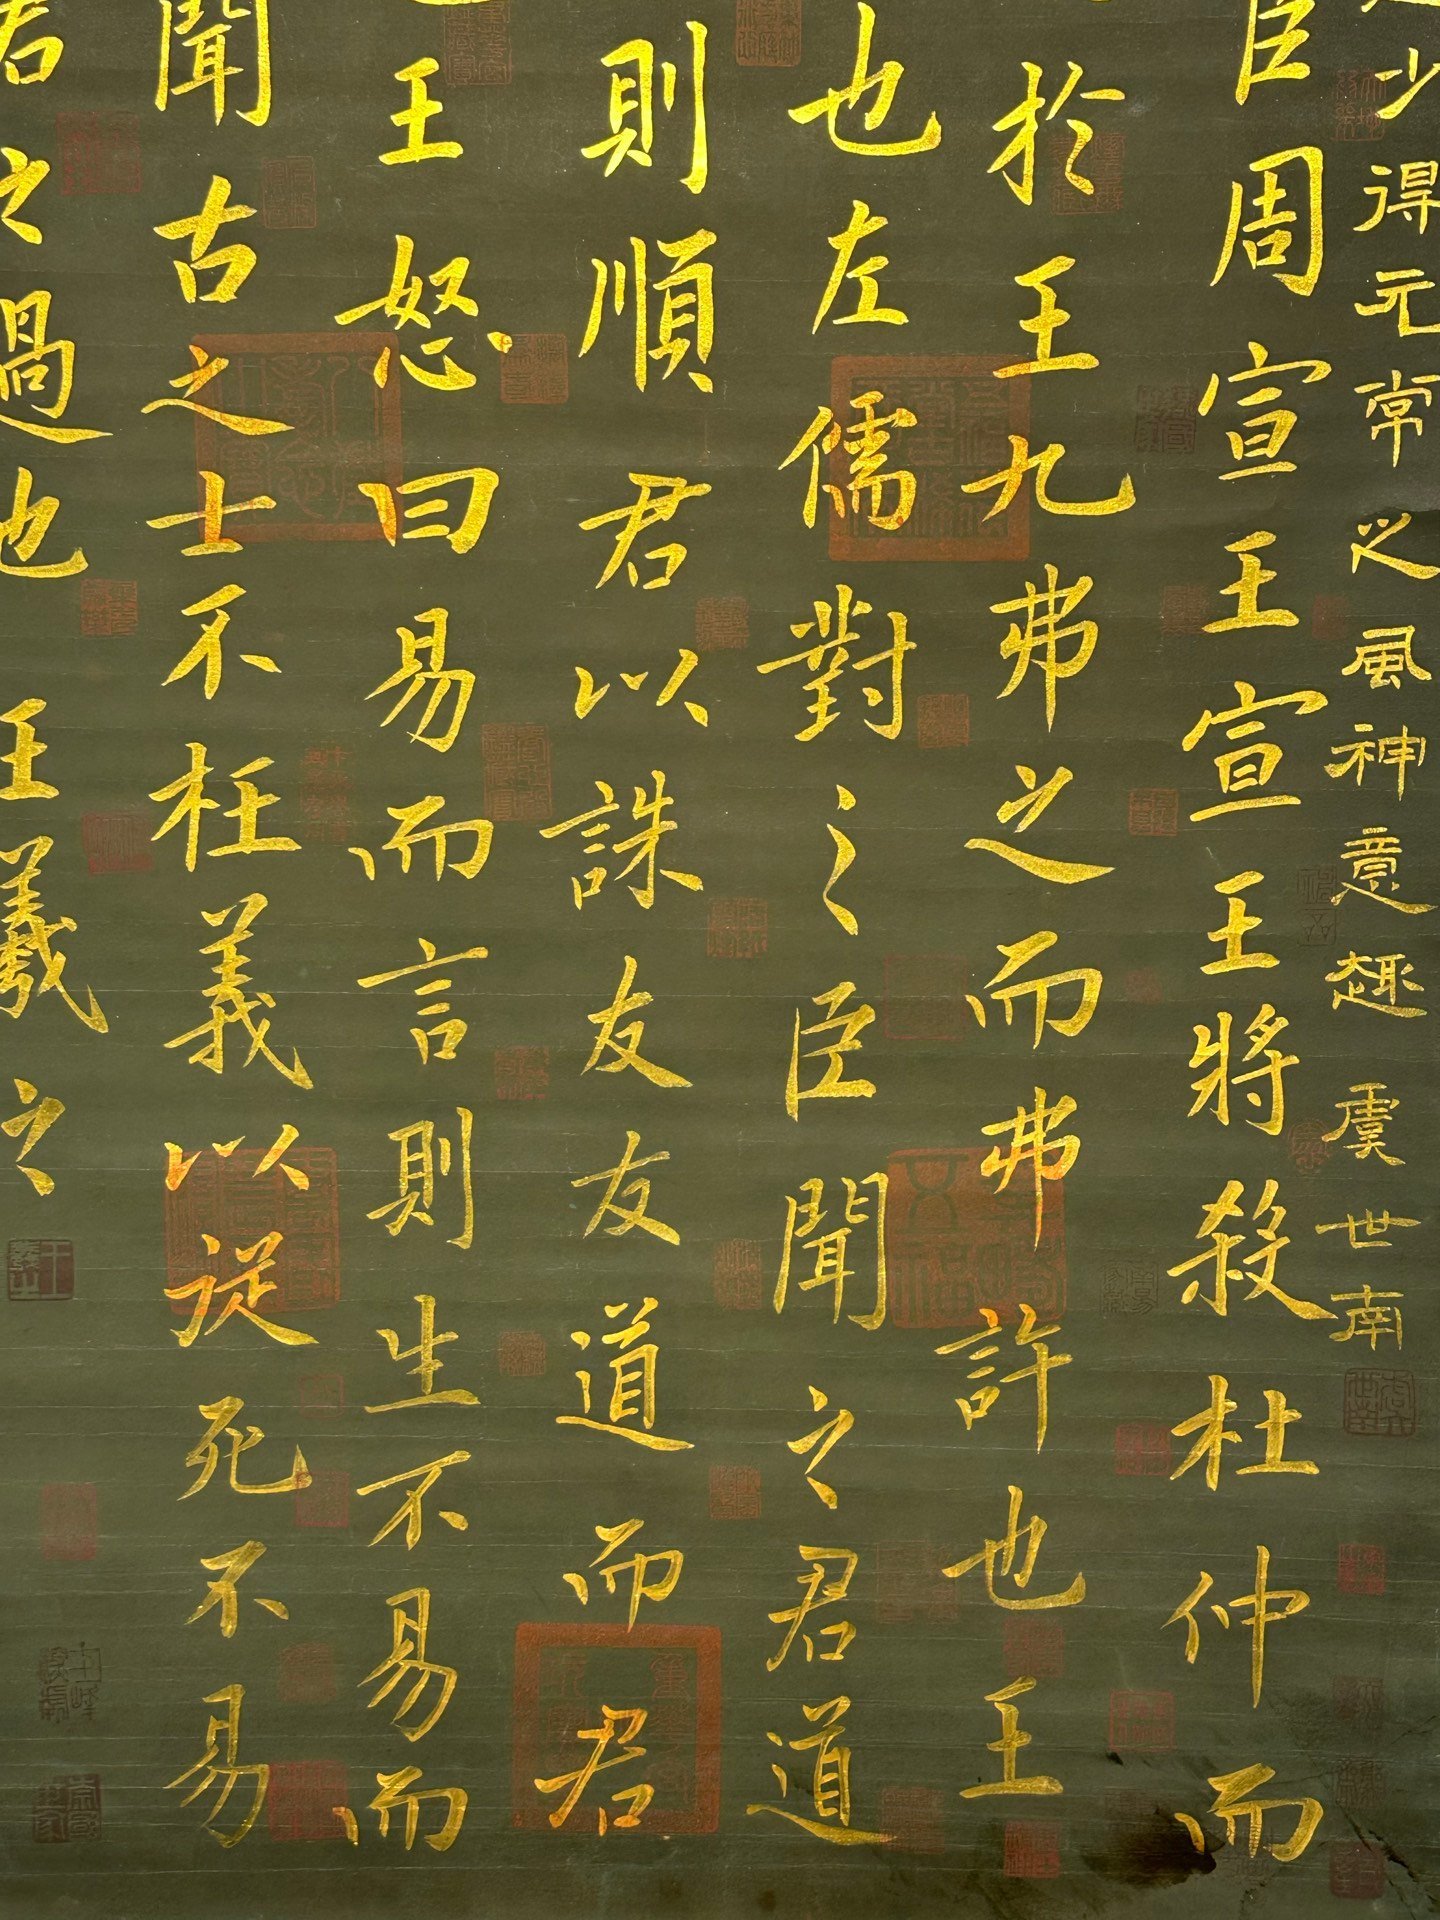 少得元常之風神意趣 虞世南
臣周宣王宣王將殺杜仲而
於王九弗之而弗許也王
也左儒對之臣聞之君道
則順君以誅友友道而君
王怒曰易而言則生不易而
聞古之士不枉義以從死不易
君之過也 王羲之